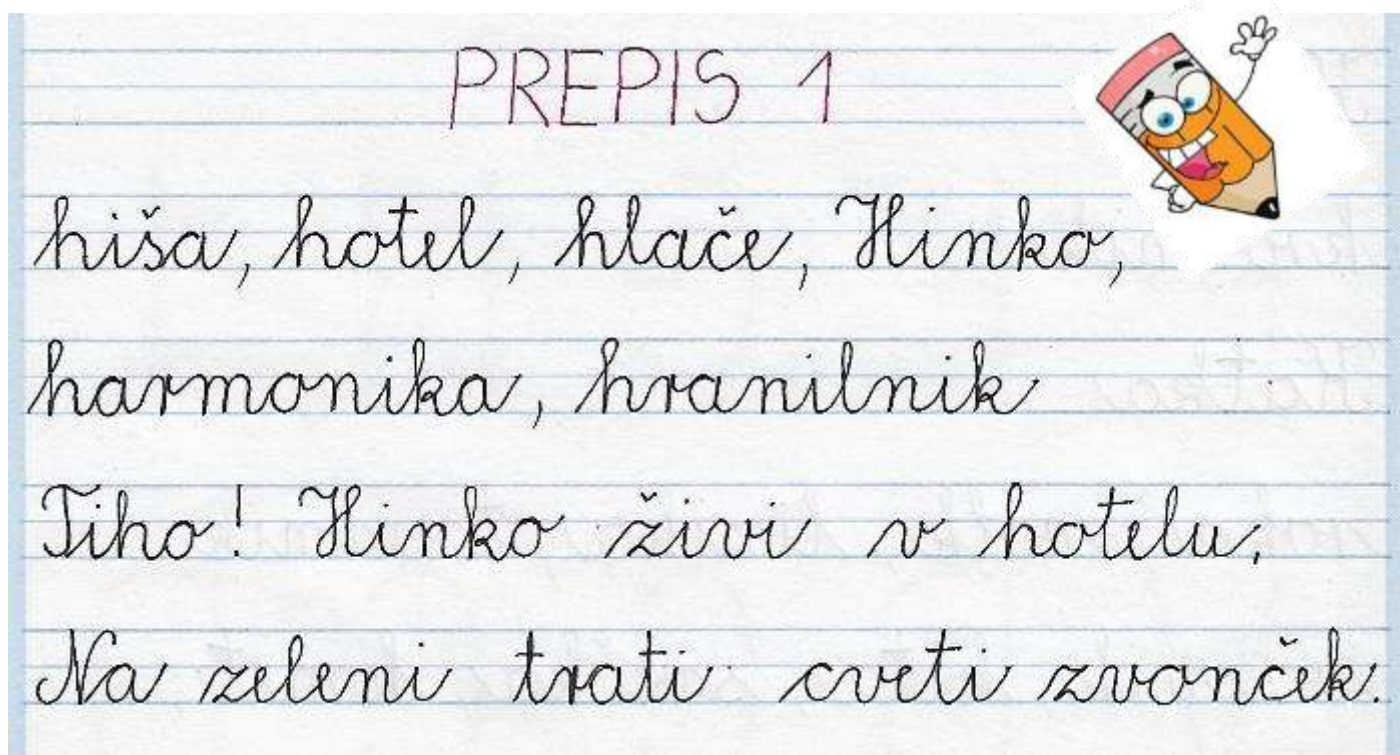 PREPIS 1
hiša, hotel, hlače, Hinko,
harmonika, hranilnik
Tiho! Hinko živi v hotelu.
Na zeleni trati cveti zvonček.